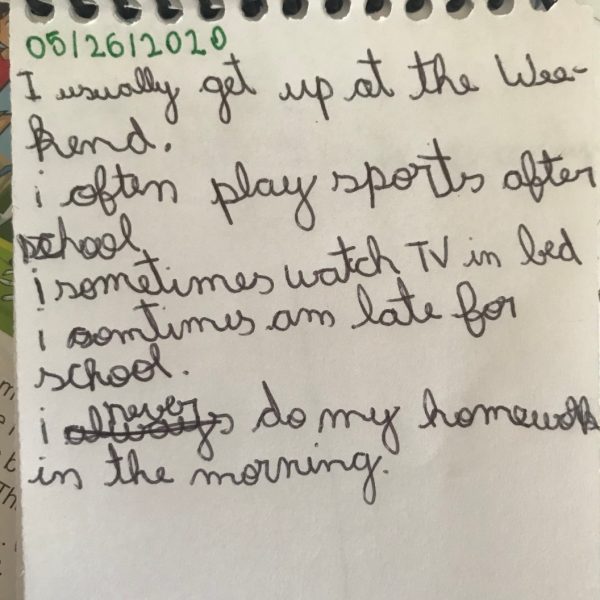 05/26/2020
I usually get up at the Wee-
kend.
i often play sports after
school.
i sometimes watch TV in bed
i somtimes am late for
school.
i never do my homework
in the morning.